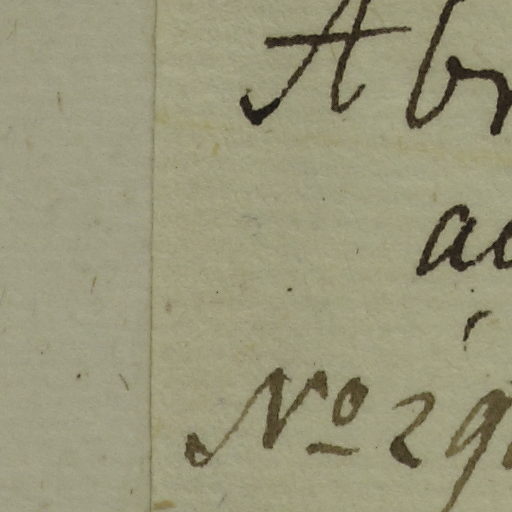 Abr
ac
No 29